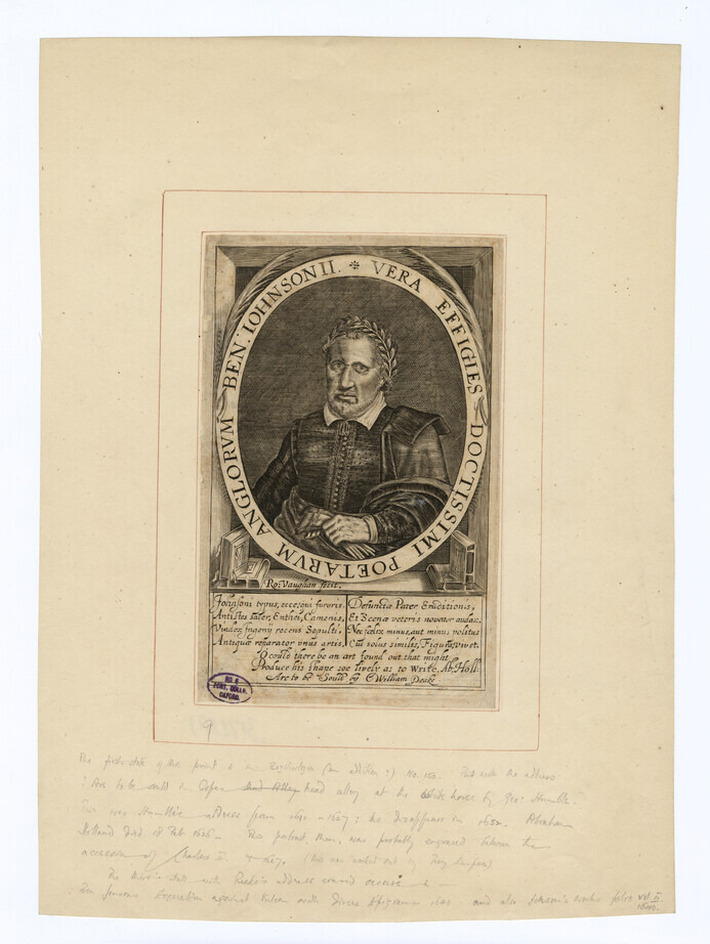 BEN: IOHNSONII. ❉ VERA EFFIGIES DOCTISSIMI POETARVM ANGLORVM
Ro: Vaughan fecit.
Johnsoni typus, ecce qui furoris,
Antistes sacer, Enthei, Camenis,
Vindex Ingenij recens Sepulti,
Antiquæ reparator vnus artis,
Defunctæ Pater Eruditionis,
Et Scenæ veteris novator audax.
Nec fælix minus, aut minus politus
Cui solus similis, Figura, vivet.
O could there be an art found out that might
Produce his shape soe lively as to Write. Ab: Holl:
Are to be Sould by William Peake
PORT. COLLN.
OXFORD.
9
The first state of this print is in No. 152. But with the address
: Are to be sould in Popes head alley at the White horse by Geo: Humble.
This was Humble's address from - 1627: he disappears in Abraham
Holland died 18 Feb 1626 - The portrait then, was probably engraved between the
accession of Charles I. + 1627.
The third state with Peake's address erased occurs in -
Ben Jonsons Execration against Vulcan with Divers Epigrams 1640 and also Johnson's works folio vol II
1640.